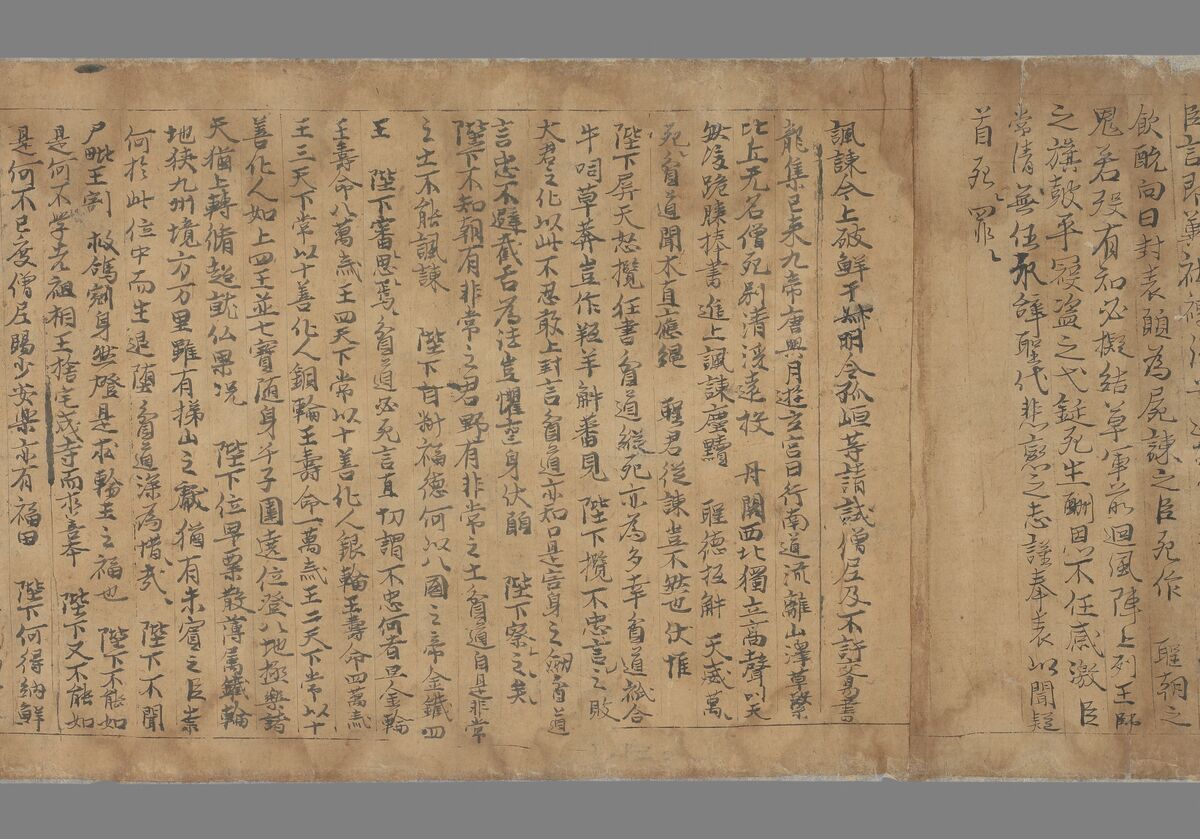 飲酖向日封表願為屍諫之臣死作 聖朝之
鬼若歿有知必擬結草軍前迴風陣上列王師
之旗鼓平寇盜之戈鋋死生酬恩不任感激臣
常清無任永辭聖代悲戀之志謹奉表以聞
首死〻罪〻
諷諫今上破鮮于叔明令狐峘等請試僧尼及不許交易書
龍集己未九帝唐興月遊玄宮日行南道流離山澤草檠
比丘无名僧死罪清淺遠投 丹闕西北獨立高聲以天
無復跪膝捧書進上諷諫塵黷 聖德拒解 天威萬
死貧道聞木直應繩 聖君從諫豈不然也伏惟
陛下屏天怒攬狂書貧道縱死亦為多幸貧道祇合
牛呞草莽豈作羝羊觸蕃見 陛下攬不忠言之敗
大君之化以此不忍敢上封言貧道亦知口是害身之
言忠不避截舌為法豈懼亡身伏願 陛下察之矣
陛下不知朝有非常之君野有非常之士貧道自是非常
之士不能諷諫 陛下自斟福德何以八國之帝金鐵四
王 陛下審思焉貧道必死言直切謂不忠何者且金輪
王壽命八萬歲王四天下常以十善化人銀輪王壽命四萬歲
王三天下常以十善化人銅輪王壽命一萬歲王二天下常以十
善化人如上四王並七寶隨身千子圍遶位登八地極樂諸
天猶上轉脩超就仏果况 陛下位卑粟散薄属鐵輪
地狹九州境方万里雖有梯山之獻猶有未賓之臣崇
何於此位中而生退墮貧道深為惜哉〻 陛下不聞
尸毗王割 救鴿剜身然燈是求輪王之福也 陛下不能如
是何不學先祖相王捨宅戍寺而求辜 陛下又不能如
是何不已度僧尼賜少安樂亦有福田 陛下何得納鮮